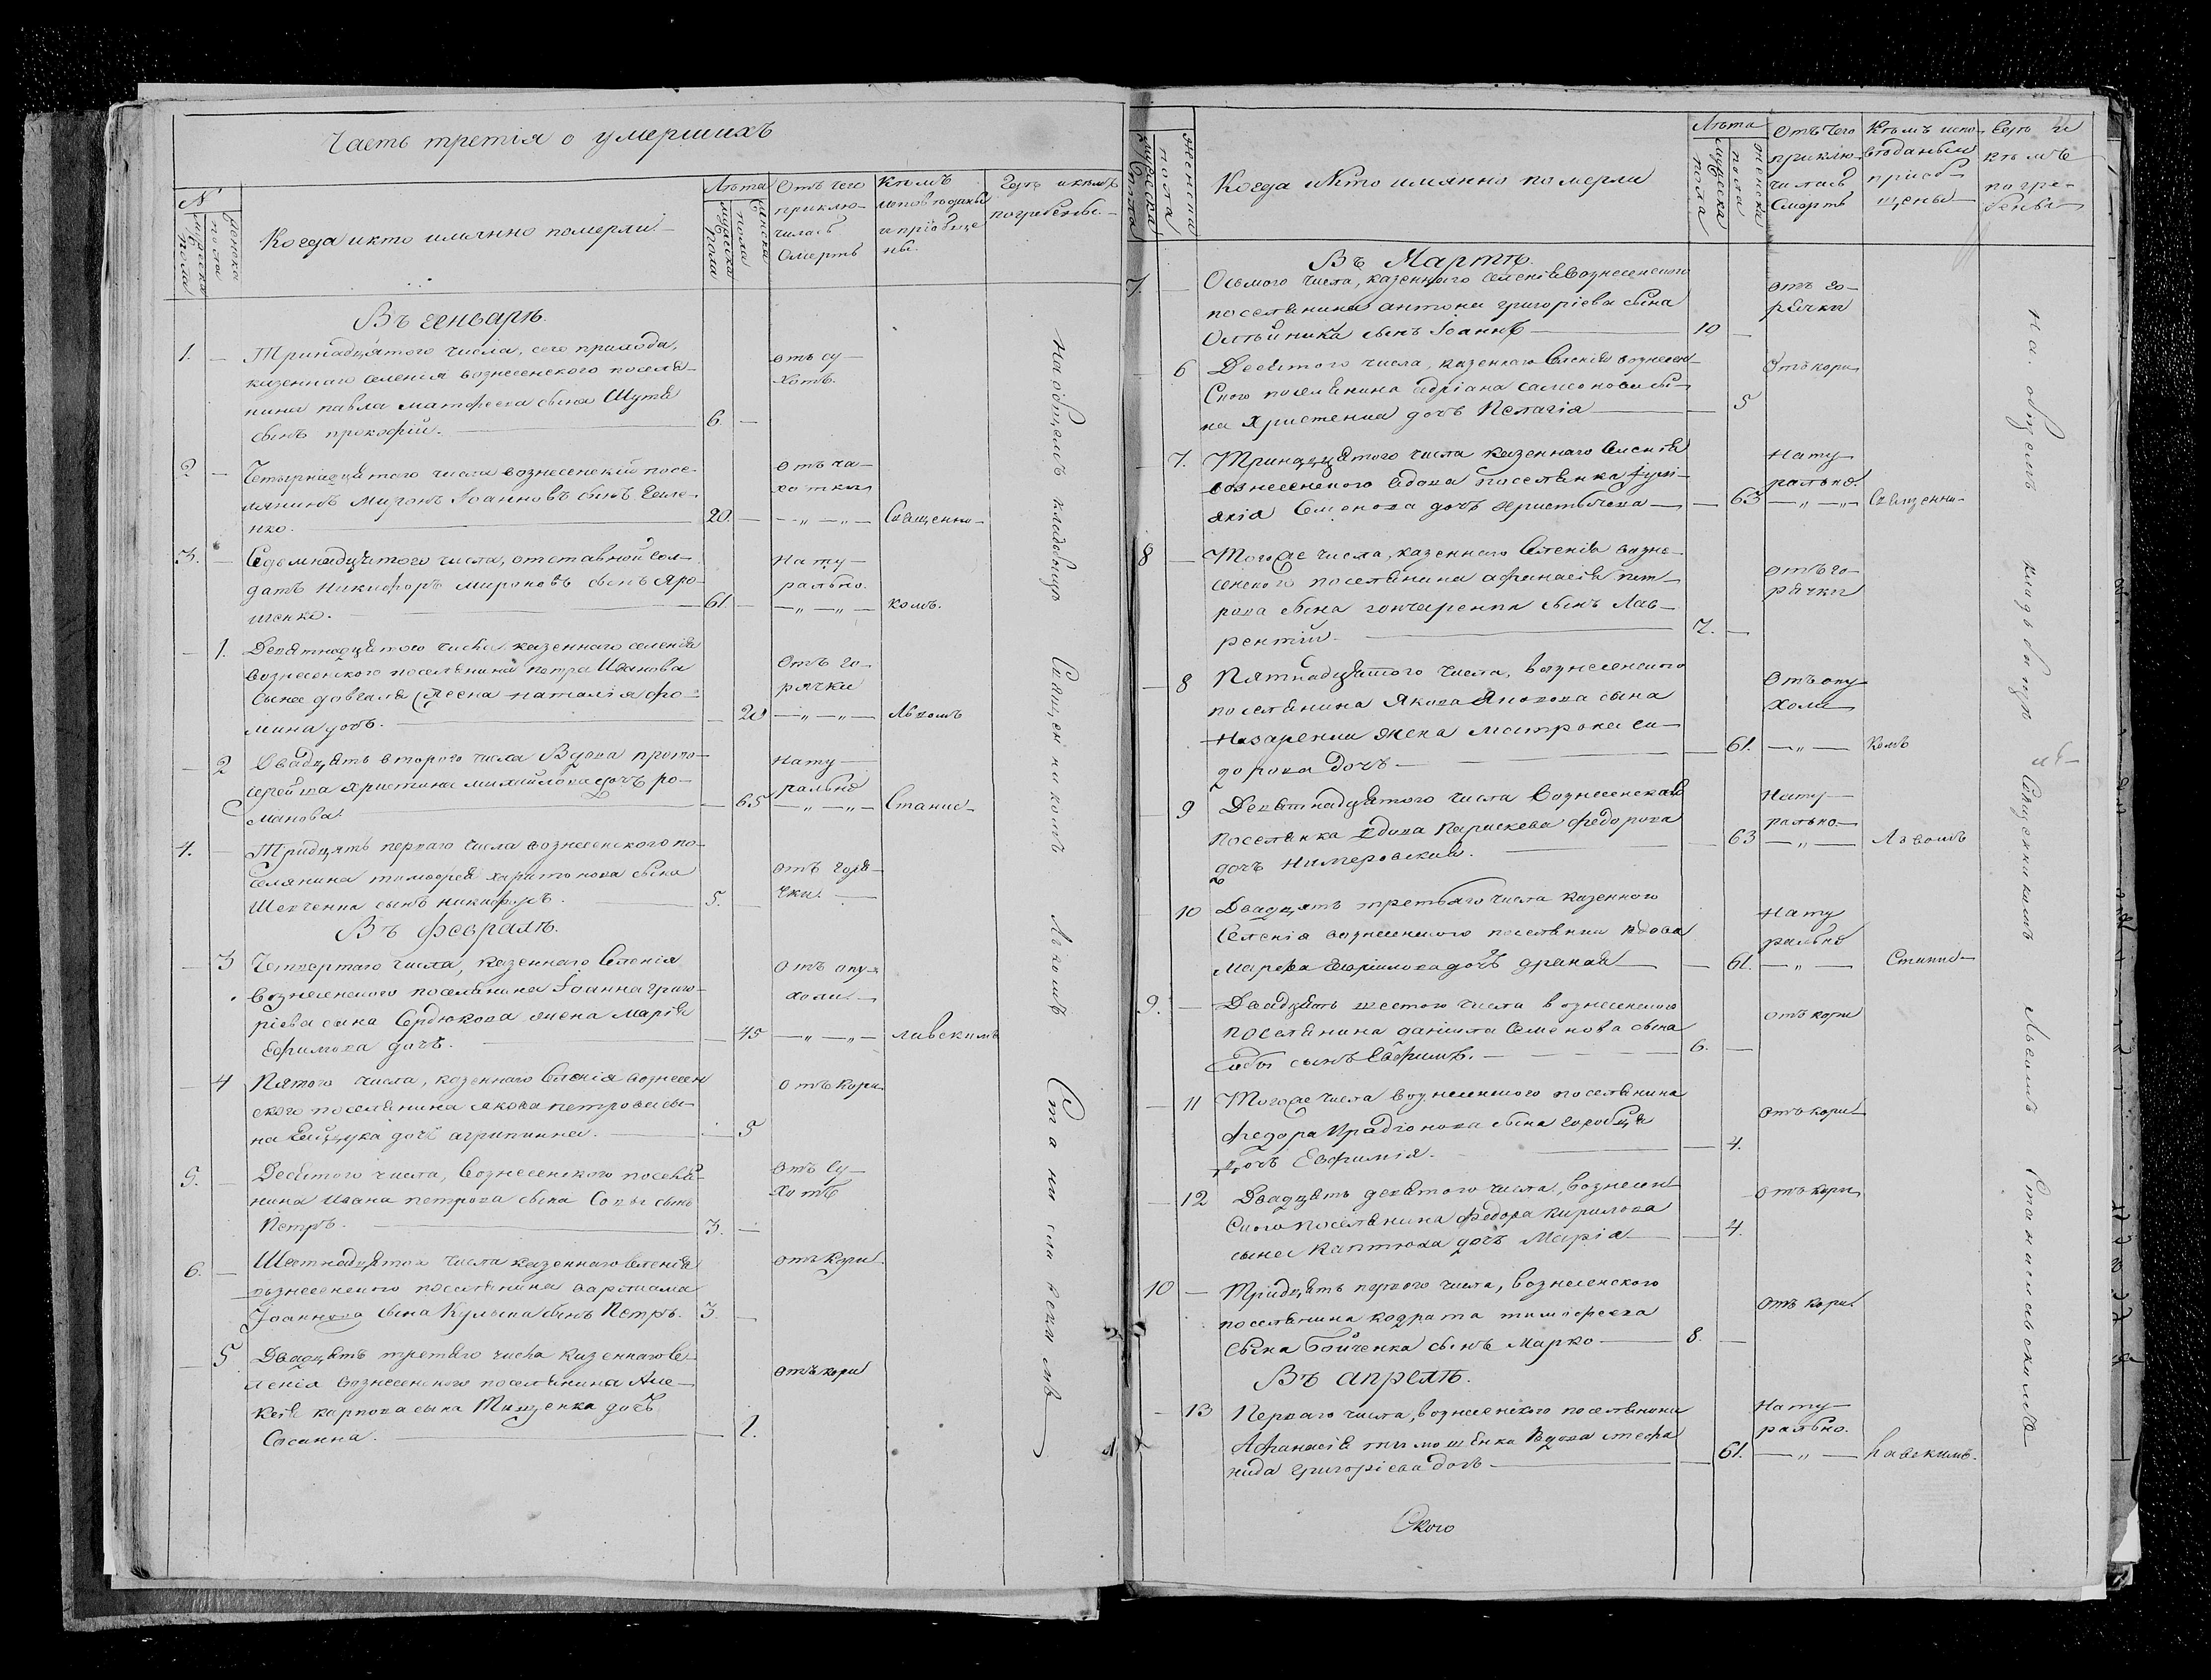 Часть третія о умершихъ
N
мужеска пола
женска пола
Когда и кто имянно померли
Лѣта
мужеска пола
женска пола
Отъ чего
приклю-
чилась
Смерть
Кѣмъ
исповѣданы
и пріобще
ны.
Где и кемъ
погребены.
Въ генварѣ.
1. — Тринадцятого числа, сего прихода,
казенного селенія вознесенского поселя-
нина павла матфеева сына Шутя
сынъ прокофій. — 6 —
отъ су-
хотъ.
2 — Четырнадцятого числа вознесенскій посе-
лянинъ Миронъ Іоанновъ сынъ
нко. — 20 —
отъ ча-
хотки
— „ — „ — Священни-
3. — Седомнадцятого числа, отставной сол-
датъ Никифоръ мироновъ сынъ Яро-
шенко. — 61. —
нату-
рально.
— „ — „ — комъ.
— 1. Девятнадцятого числа казенного селенія
вознесенского поселянина петра Иванова
сына довгаля жена наталія фо-
мина дочь. — 20
отъ го-
рячки
— „ — „ — Львомъ
— 2 Двадцять второго числа Вдова прото-
іерейша христина михайлова дочь ро-
манова. — 65
нату-
рально
— „ — „ — Станис-
4. — Тридцять перваго числа вознесенского по-
селянина тимофея харитонова сына
Шевченка сынъ никифоръ. — 5. —
отъ горя-
чки. —
Въ февралѣ.
— 3 Четвертаго числа, казенного селенія
вознесенского поселянина Іоанна григо-
ріева сына Сердюкова жена Марія
Ефимова дочь. — 45
отъ опу-
холи. —
— „ — „ — лавскимъ
— 4 Пятого числа, казенного селенія вознесен
ского поселянина якова петрова сы-
на дочь агрипинна. — 5
отъ кори.
5. — Десятого числа, вознесенского поселя-
нина Ивана петрова сына Совы сынъ
Петръ. — 3. —
отъ су-
хотъ
6. — Шестнадцятого числа казенного селенія
вознесенского поселянина варлаама
Іоаннова сына Кулика сынъ Петръ. 3. —
отъ кори
— 5 Двадцять третяго числа казенного се-
ленія вознесенского поселянина Але-
ксія карпова сына Тищенка дочь
Сосанна. — 1.
отъ кори
На общемъ кладовищѣ Священникомъ Львомъ Станиславскимъ
мужеска пола
женска пола
Когда и кто имянно померли
Лѣта
мужеска пола
женска пола
Отъ чего
приклю-
чилась
Смерть
Кѣмъ испо-
вѣданы и
пріоб-
щены
Где и
кѣмъ
погре-
бены
Въ Мартѣ.
7. — Осьмого числа, казенного селенія вознесенского
поселянина антона григоріева сына
Олѣйника сынъ Іоаннъ — 10 —
отъ го-
рячки
— 6 Десятого числа, казенного селенія вознесен-
ского поселянина адріана самсонова сы-
на Христенка дочь Пелагія — 5
Отъ кори
— 7. Тринадцятого числа казенного селенія
вознесенского вдова поселянка
Семенова дочь — 63
нату-
рально.
— „ — „ — Священни-
8 — Того же числа, казенного селенія возне-
сенского поселянина афанасія пет-
рова сына гончаренка сынъ Лав-
рентій. — 7. —
отъ го-
рячки
— 8 Пятнадцятого числа, вознесенского
поселянина Якова Яковова сына
Назаренка жена матрона си-
дорова дочь — 61.
отъ опу
холи
— „ — комъ
— 9 Девятнадцятого числа вознесенская
поселянка вдова Параскева федорова
дочь — 63
нату-
рально
— „ — Львомъ
— 10 Двадцять третьяго числа казенного
селенія вознесенского поселянка вдова
Марфа дочь — 61.
нату
рально
— „ — Станис-
9. — Двадцять шестого числа вознесенского
поселянина даніила Семенова сына
сынъ Евфимъ. — 6. —
отъ кори
— 11 Того же числа вознесенского поселянина
федора Ирадіонова сына горобця
дочь Евфимія. — 4.
отъ кори
— 12 Двадцять девятого числа, вознесен-
ского поселянина федора кирилова
сына Каптюха дочь Марія — 4.
отъ кори
10 — Тридцять первого числа, вознесенского
поселянина кодрата тимофеева
сына Бойченка сынъ Марко — 8. —
отъ кори
Въ апрелѣ.
— 13 Перваго числа, вознесенского поселянина
Афанасія тимошенка вдова стефа
нида григоріева дочь — 61.
нату-
рально.
— „ — лавскимъ.
На общемъ кладовищѣ Священникомъ Львомъ Станиславскимъ
Окого